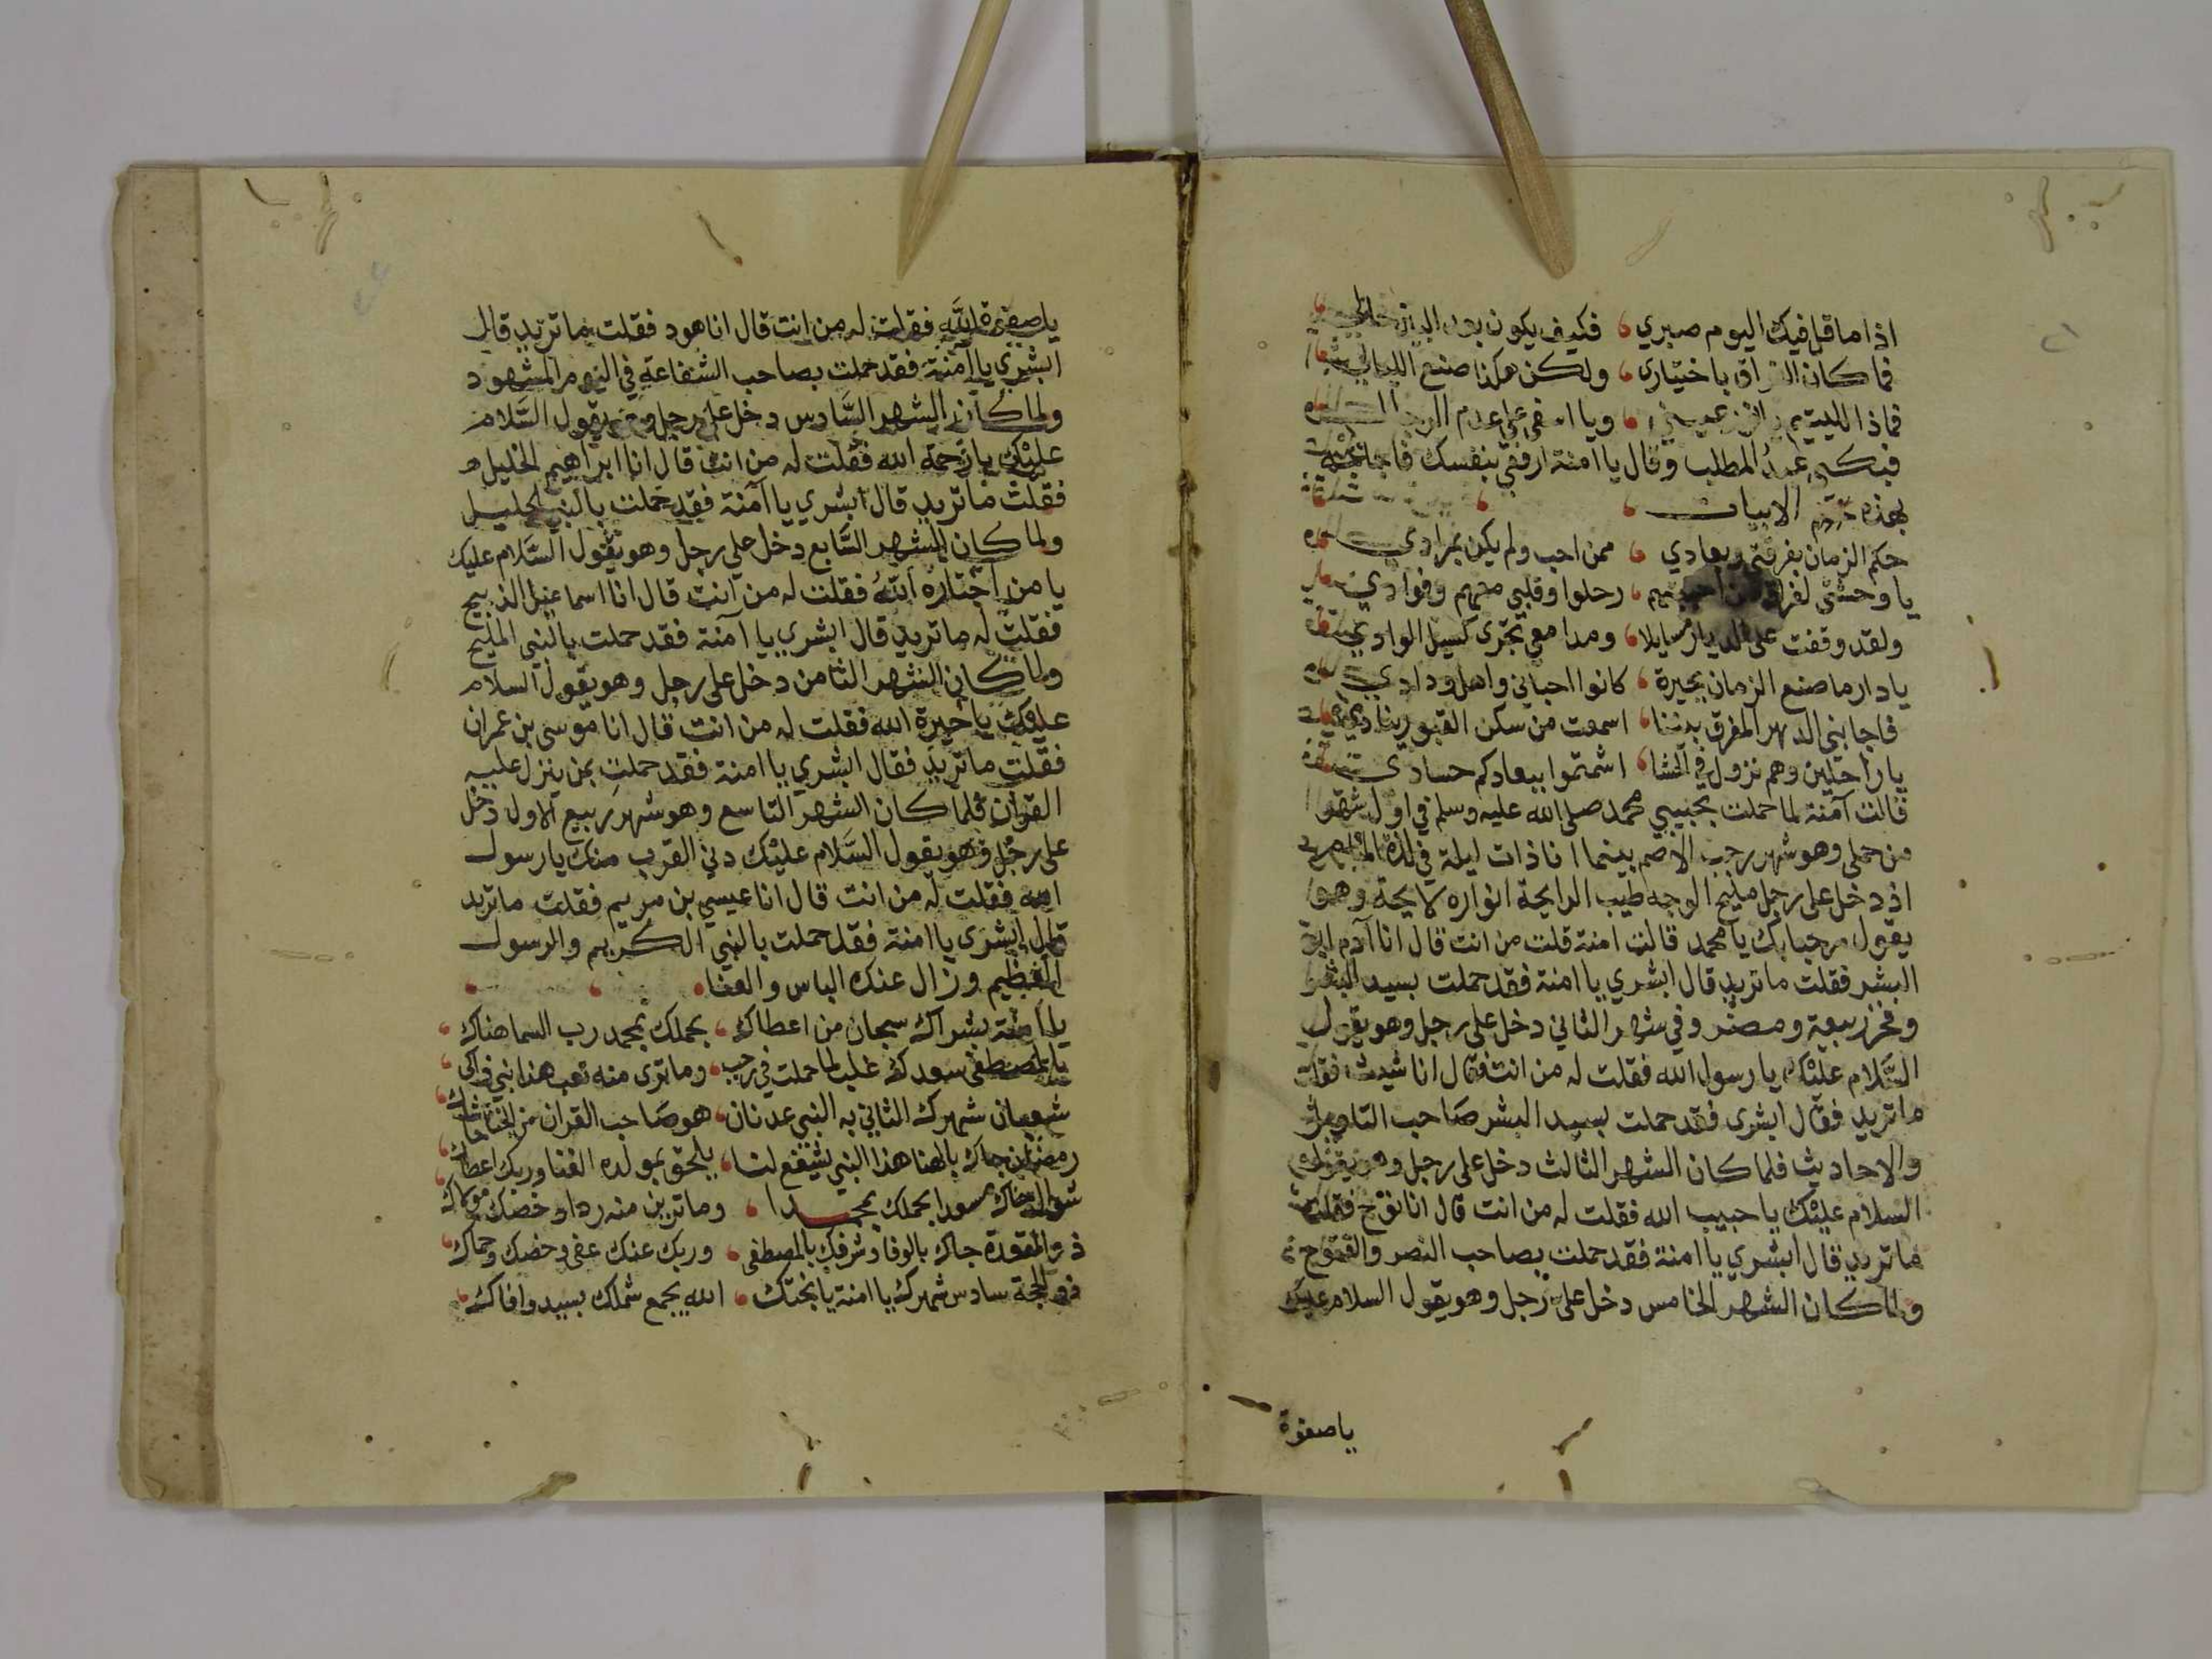 اذا ما قل فيك اليوم صبري، فكيف يكون
فما كان الفراق باختياري، ولكن هكذا صنع الليالي
ويا اسفي على عدم
فبكى عبد المطلب وقال يا امنة ارفقي بنفسك
بهذه الابيات
حكم الزمان بفرقتي وبعادي، ممن احب ولم يكن بمرادي
يا وحشتي لفراق رحلوا وقلبي معهم وفوادي
ولقد وقفت على الديار مسايلا، ومدامعي تجري كسيل الوادي
يا دار ما صنع الزمان بجيرة، كانوا احبائي واهل ودادي
فاجابني الدهر المفرق بيننا، اسمعت من سكن القبور ينادي
يا راحلين وهم نزول في الحشا، اشمتموا ببعادكم حسادي
قالت آمنة لما حملت بحبيبي محمد صلى الله عليه وسلم في اول شهر
من حملي وهو شهر رجب الاصم بينما انا ذات ليلة في لذة المنام
اذ دخل علي رجل مليح الوجه طيب الرايحة انواره لايحة وهو
يقول مرحبا بك يا محمد قالت امنة قلت من انت قال انا آدم ابو
البشر فقلت ما تريد قال ابشري يا امنة فقد حملت بسيد البشر
وفخر ربيعة ومضر وفي شهر الثاني دخل علي رجل وهو يقول
السَّلام عليْك يا رسول الله فقلت له من انت فقال انا شيث فقلت
ما تريد فقال ابشري فقد حملت بسيد البشر صَاحب التاويل
والاحاديث فلما كان الشهر الثالث دخل علي رجل وهو يقول
السلام عليْك يا حبيب الله فقلت له من انت قال انا نوح فقلت
ما تريد قال ابشري يا امنة فقد حملت بصاحب النصر والفتوح
ولما كان الشهر الخامس دخل علي رجل وهو يقول السلام عليك
يا صفوة
يا صفوة الله فقلت له من انت قال انا هود فقلت ما تريد قال
ابشري يا آمنة فقد حملت بصاحب الشفاعة في اليوم المشهود
ولما كان الشهر السَّادس دخل علي رجل وهو يقول السَّلام
عليْك يا رحمة الله فقلت له من انت قال انا ابراهيم الخليل
فقلت ما تريد قال ابشري يا آمنة فقد حملت بالنبي الجليل
ولما كان الشهر السَّابع دخل علي رجل وهو يقول السَّلام عليك
يا من اختاره اللهُ فقلت له من انت قال انا اسماعيل الذبيح
فقلت له ما تريد قال ابشري يا آمنة فقد حملت بالنبي المليح
ولما كان الشهر الثامن دخل علي رجل وهو يقول السلام
عليك يا خيرة الله فقلت له من انت قال انا موسى بن عمران
فقلت ما تريد فقال ابشري يا امنة فقد حملت بمن ينزل عليه
القران فلما كان الشهر التاسع وهو شهر ربيع الاول دخل
علي رجل وهو يقول السَّلام عليْك دني القرب منك يا رسول
الله فقلت له من انت قال انا عيسي بن مريم فقلت ما تريد
قال ابشري يا امنة فقد حملت بالنبي الكريم والرسول
العظيم وزال عنك الباس والعنا،
يا آمنة بشراك سبحان من اعطاك، بحملك بمحمد رب السما هناك،
بالمصطفى سعدك غلب لما حملت في رجب، وما ترى منه تعب هذا نبي
شعبان شهرك الثاني به النبي عدنان، هو صَاحب القران
رمضان جاك بالهنا هذا النبي يشفع لنا، يلحق بمولده الغنا وربك اعطاك
شوال جاك مسعدا بحملك بمحمدا، وما ترين منه ردا
ذو القعدة جاك بالوفا وشرفك بالمصطفى، وربك عنك عفى وخصك وحماك
ذو الحجة سادس شهرك يا امنة يا بختك، الله يجمع شملك بسيد وافاك،